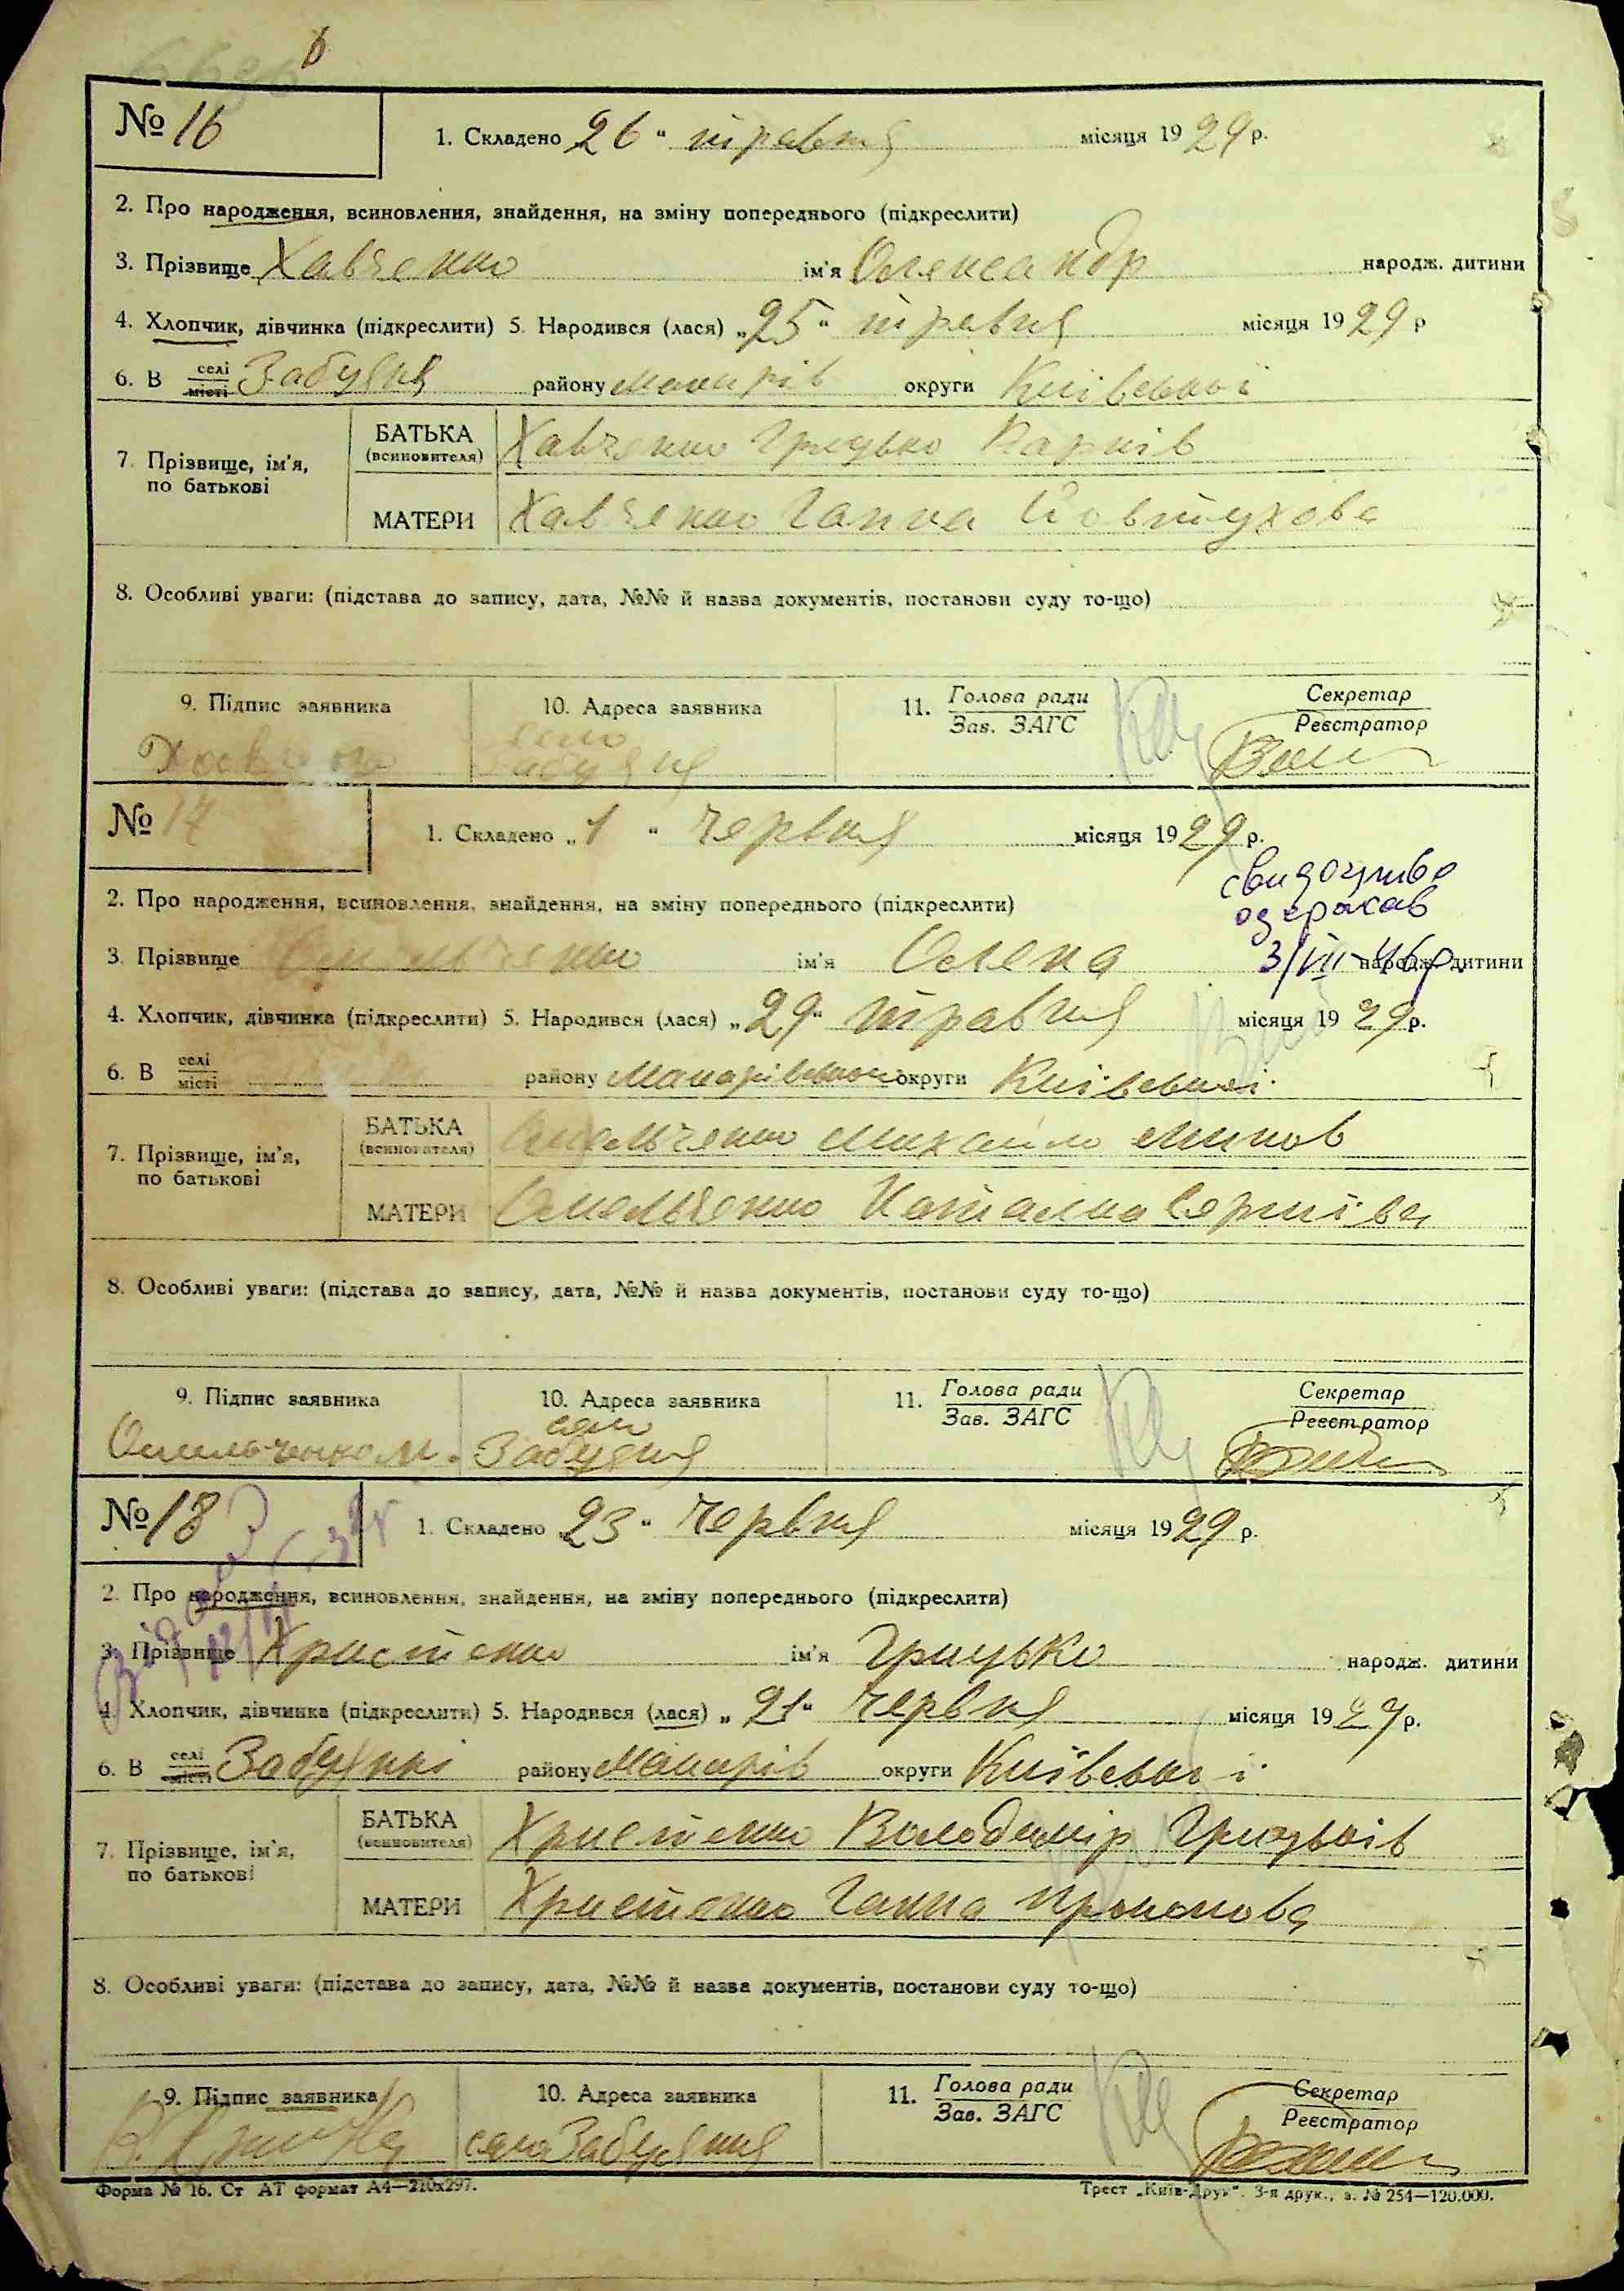 6
№ 16
1. Складено 26 " травня місяця 1929 р.
2. Про народження, всиновлення, знайдення, на зміну попереднього (підкреслити)
3. Прізвище Хавченко ім'я Олександр народж. дитини
4. Хлопчик, дівчинка (підкреслити) 5. Народився (лася) „25" травня місяця 1929 р
6. В селі/місті Забуяня району Макарів округи Київської
7. Прізвище, ім'я, по батькові
БАТЬКА (всиновителя) Хавченко Грицько Карпів
МАТЕРИ Хавченко Ганна Йовтухова
8. Особливі уваги: (підстава до запису, дата, №№ й назва документів, постанови суду то-що)
9. Підпис заявника 10. Адреса заявника 11. Голова ради/Зав. ЗАГС Секретар/Реєстратор
село
Забуяня
№ 17
1. Складено „1" червня місяця 1929 р.
свидоцтво
одержав
3/VII-46р.
2. Про народження, всиновлення, знайдення, на зміну попереднього (підкреслити)
3. Прізвище Омельченко ім'я Олена народж. дитини
4. Хлопчик, дівчинка (підкреслити) 5. Народився (лася) „29" травня місяця 1929 р.
6. В селі/місті району Макарівського округи Київської
7. Прізвище, ім'я, по батькові
БАТЬКА (всиновителя) Омельченко Михайло Миков
МАТЕРИ Омельченко Наталка Сергіїва
8. Особливі уваги: (підстава до запису, дата, №№ й назва документів, постанови суду то-що)
9. Підпис заявника 10. Адреса заявника 11. Голова ради/Зав. ЗАГС Секретар/Реєстратор
село
Омельченко М. Забуяня
№ 18
1. Складено „23" червня місяця 1929 р.
2. Про народження, всиновлення, знайдення, на зміну попереднього (підкреслити)
3. Прізвище Христенко ім'я Грицько народж. дитини
4. Хлопчик, дівчинка (підкреслити) 5. Народився (лася) „21" червня місяця 1929 р.
6. В селі/місті Забуянні району Макарів округи Київської
7. Прізвище, ім'я, по батькові
БАТЬКА (всиновителя) Христенко Володимір Грицьків
МАТЕРИ Христенко Ганна Прокопова
8. Особливі уваги: (підстава до запису, дата, №№ й назва документів, постанови суду то-що)
9. Підпис заявника 10. Адреса заявника 11. Голова ради/Зав. ЗАГС Секретар/Реєстратор
село Забуяння
Форма № 16. Ст АТ формат А4—210x297. Трест „Київ-Друк". 3-я друк., з. № 254—120.000.